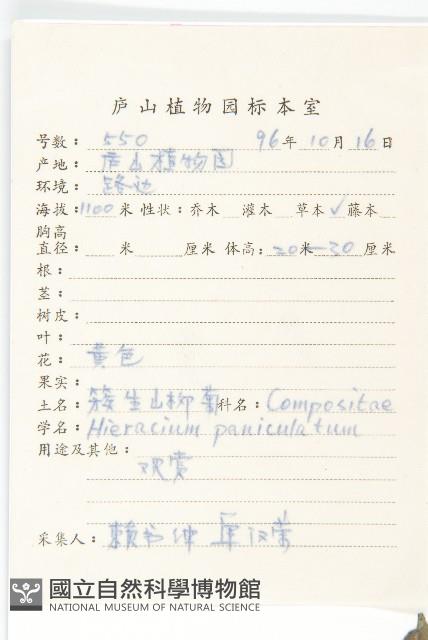 庐山植物园标本室
号数：550 96年10月16日
产地：庐山植物园
环境：路边
海拔：1100米 性状：乔木 灌木 草本✓藤本
胸高
直径： 米 厘米 体高：20米—30厘米
根：
茎：
树皮：
叶：
花：黄色
果实：
土名：簇生山柳菊 科名：Compositae
学名：Hieracium paniculatum
用途及其他：
观赏
采集人：赖书绅
國立自然科學博物館
NATIONAL MUSEUM OF NATURAL SCIENCE